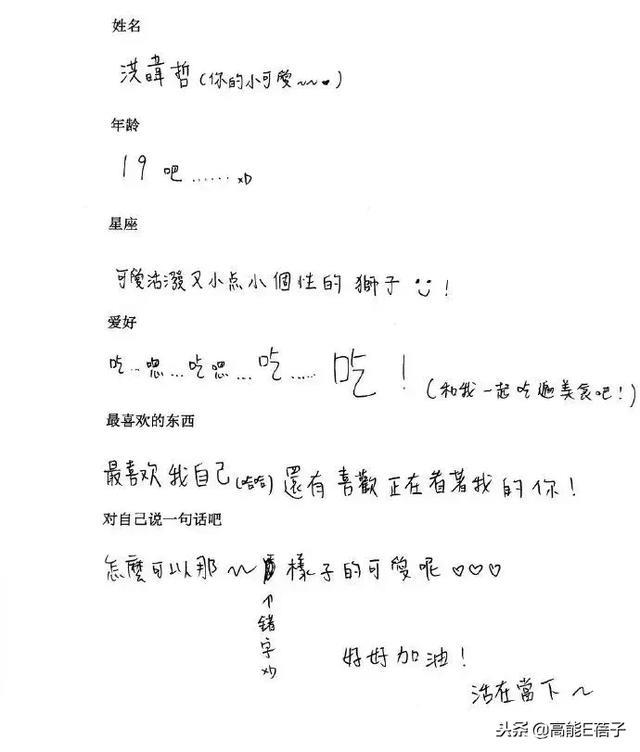 姓名
洪暐哲(你的小可愛~~♥)
年龄
19吧......xD
星座
可愛活潑又小点小個性的獅子!
爱好
吃...嗯...吃嗯...吃......吃!(和我一起吃遍美食吧!)
最喜欢的东西
最喜欢我自己(哈哈)還有喜歡正在看著我的你!
对自己说一句话吧
怎麼可以那~樣子的可愛呢♡♡♡
↑錯字xD
好好加油!
活在當下~
头条@高能E蓓子